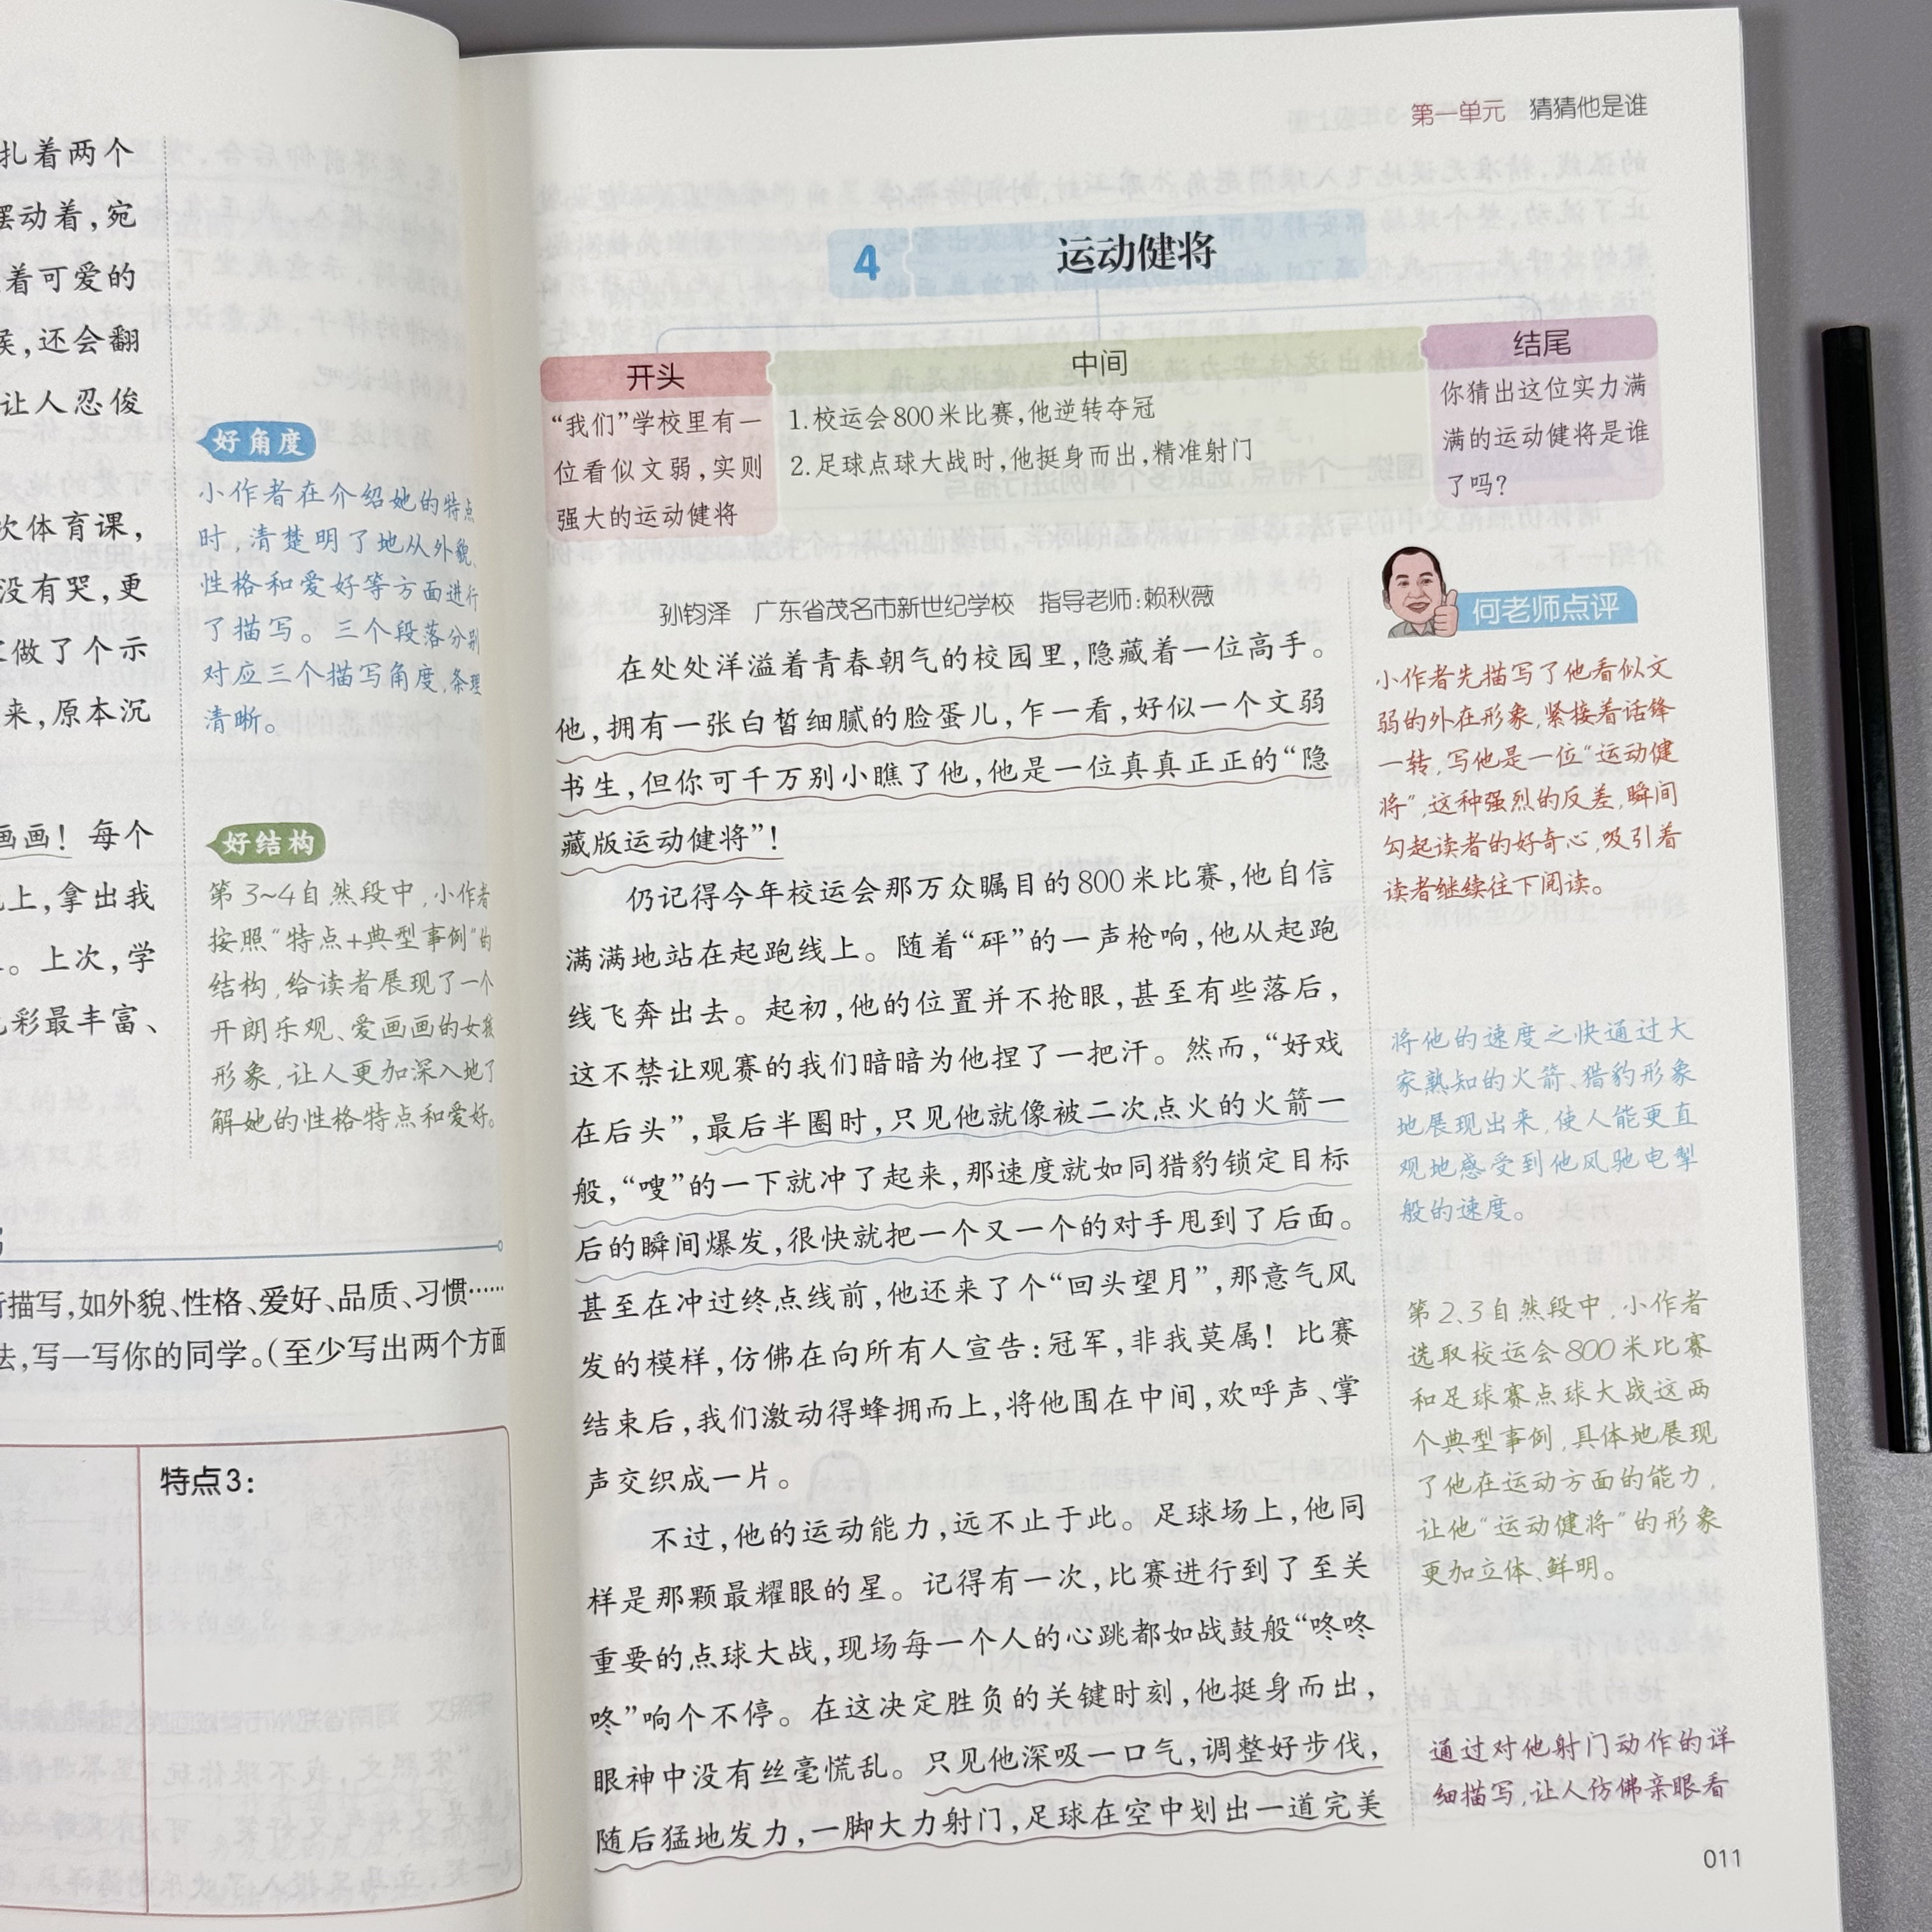 扎着两个
摆动着，宛
着可爱的
候，还会翻
让人忍俊
次体育课，
没有哭，更
做了个示
来，原本沉
画画！每个
上，拿出我
。上次，学
彩最丰富、
好角度
小作者在介绍她的特点
时，清楚明了地从外貌、
性格和爱好等方面进行
了描写。三个段落分别
对应三个描写角度，条理
清晰。
好结构
第3~4自然段中，小作者
按照“特点+典型事例”的
结构，给读者展现了一个
开朗乐观、爱画画的女孩
形象，让人更加深入地了
解她的性格特点和爱好。
描写，如外貌、性格、爱好、品质、习惯……
法，写一写你的同学。（至少写出两个方面
特点3：
第一单元 猜猜他是谁
4 运动健将
开头
“我们”学校里有一
位看似文弱，实则
强大的运动健将
中间
1.校运会800米比赛，他逆转夺冠
2.足球点球大战时，他挺身而出，精准射门
结尾
你猜出这位实力满
满的运动健将是谁
了吗？
孙钧泽 广东省茂名市新世纪学校 指导老师：赖秋薇
在处处洋溢着青春朝气的校园里，隐藏着一位高手。
他，拥有一张白皙细腻的脸蛋儿，乍一看，好似一个文弱
书生，但你可千万别小瞧了他，他是一位真真正正的“隐
藏版运动健将”！
仍记得今年校运会那万众瞩目的800米比赛，他自信
满满地站在起跑线上。随着“砰”的一声枪响，他从起跑
线飞奔出去。起初，他的位置并不抢眼，甚至有些落后，
这不禁让观赛的我们暗暗为他捏了一把汗。然而，“好戏
在后头”，最后半圈时，只见他就像被二次点火的火箭一
般，“嗖”的一下就冲了起来，那速度就如同猎豹锁定目标
后的瞬间爆发，很快就把一个又一个的对手甩到了后面。
甚至在冲过终点线前，他还来了个“回头望月”，那意气风
发的模样，仿佛在向所有人宣告：冠军，非我莫属！比赛
结束后，我们激动得蜂拥而上，将他围在中间，欢呼声、掌
声交织成一片。
不过，他的运动能力，远不止于此。足球场上，他同
样是那颗最耀眼的星。记得有一次，比赛进行到了至关
重要的点球大战，现场每一个人的心跳都如战鼓般“咚咚
咚”响个不停。在这决定胜负的关键时刻，他挺身而出，
眼神中没有丝毫慌乱。只见他深吸一口气，调整好步伐，
随后猛地发力，一脚大力射门，足球在空中划出一道完美
何老师点评
小作者先描写了他看似文
弱的外在形象，紧接着话锋
一转，写他是一位“运动健
将”，这种强烈的反差，瞬间
勾起读者的好奇心，吸引着
读者继续往下阅读。
将他的速度之快通过大
家熟知的火箭、猎豹形象
地展现出来，使人能更直
观地感受到他风驰电掣
般的速度。
第2、3自然段中，小作者
选取校运会800米比赛
和足球赛点球大战这两
个典型事例，具体地展现
了他在运动方面的能力，
让他“运动健将”的形象
更加立体、鲜明。
通过对他射门动作的详
细描写，让人仿佛亲眼看
011